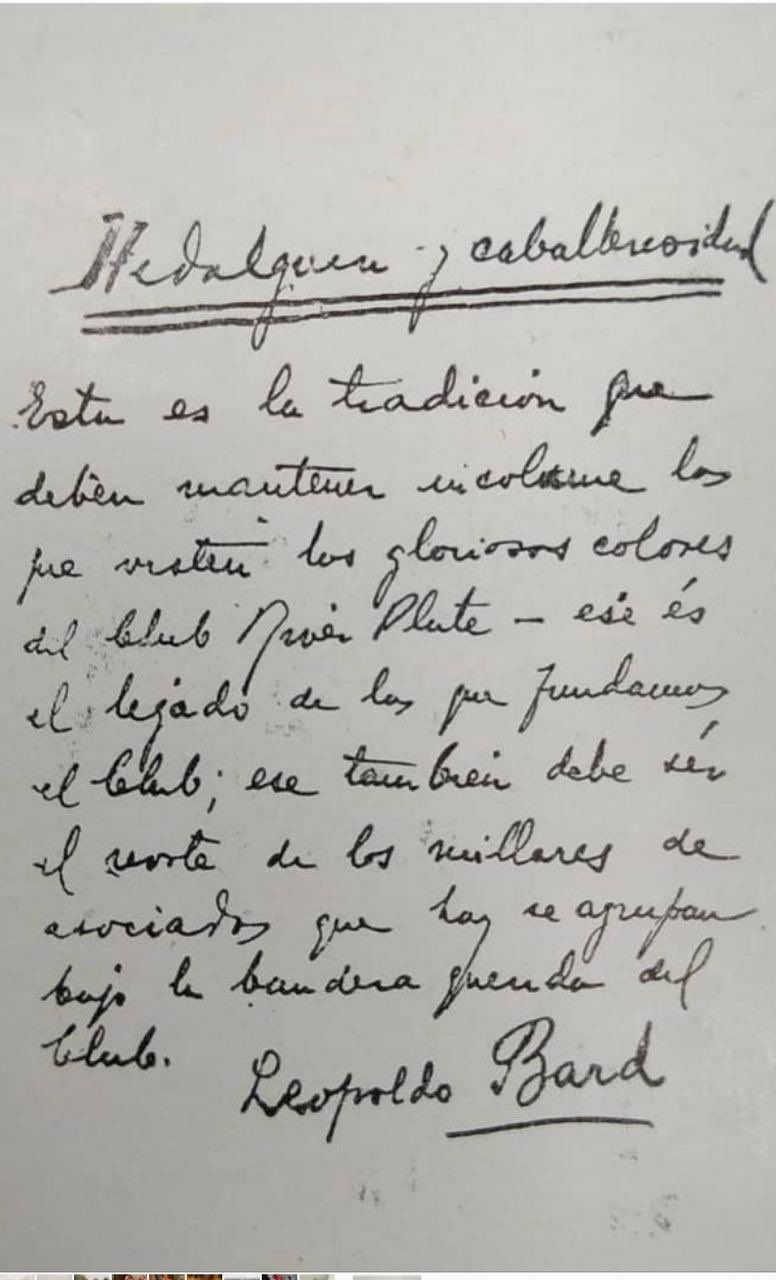 Hidalguia y caballerosidad
Esta es la tradición que
deben mantener incolume los
que visten los gloriosos colores
del Club River Plate - ese és
el legado de los que fundamos
el Club; ese tambien debe sér
el norte de los millares de
asociados que hoy se agrupan
bajo la bandera querida del
Club.
Leopoldo Bard